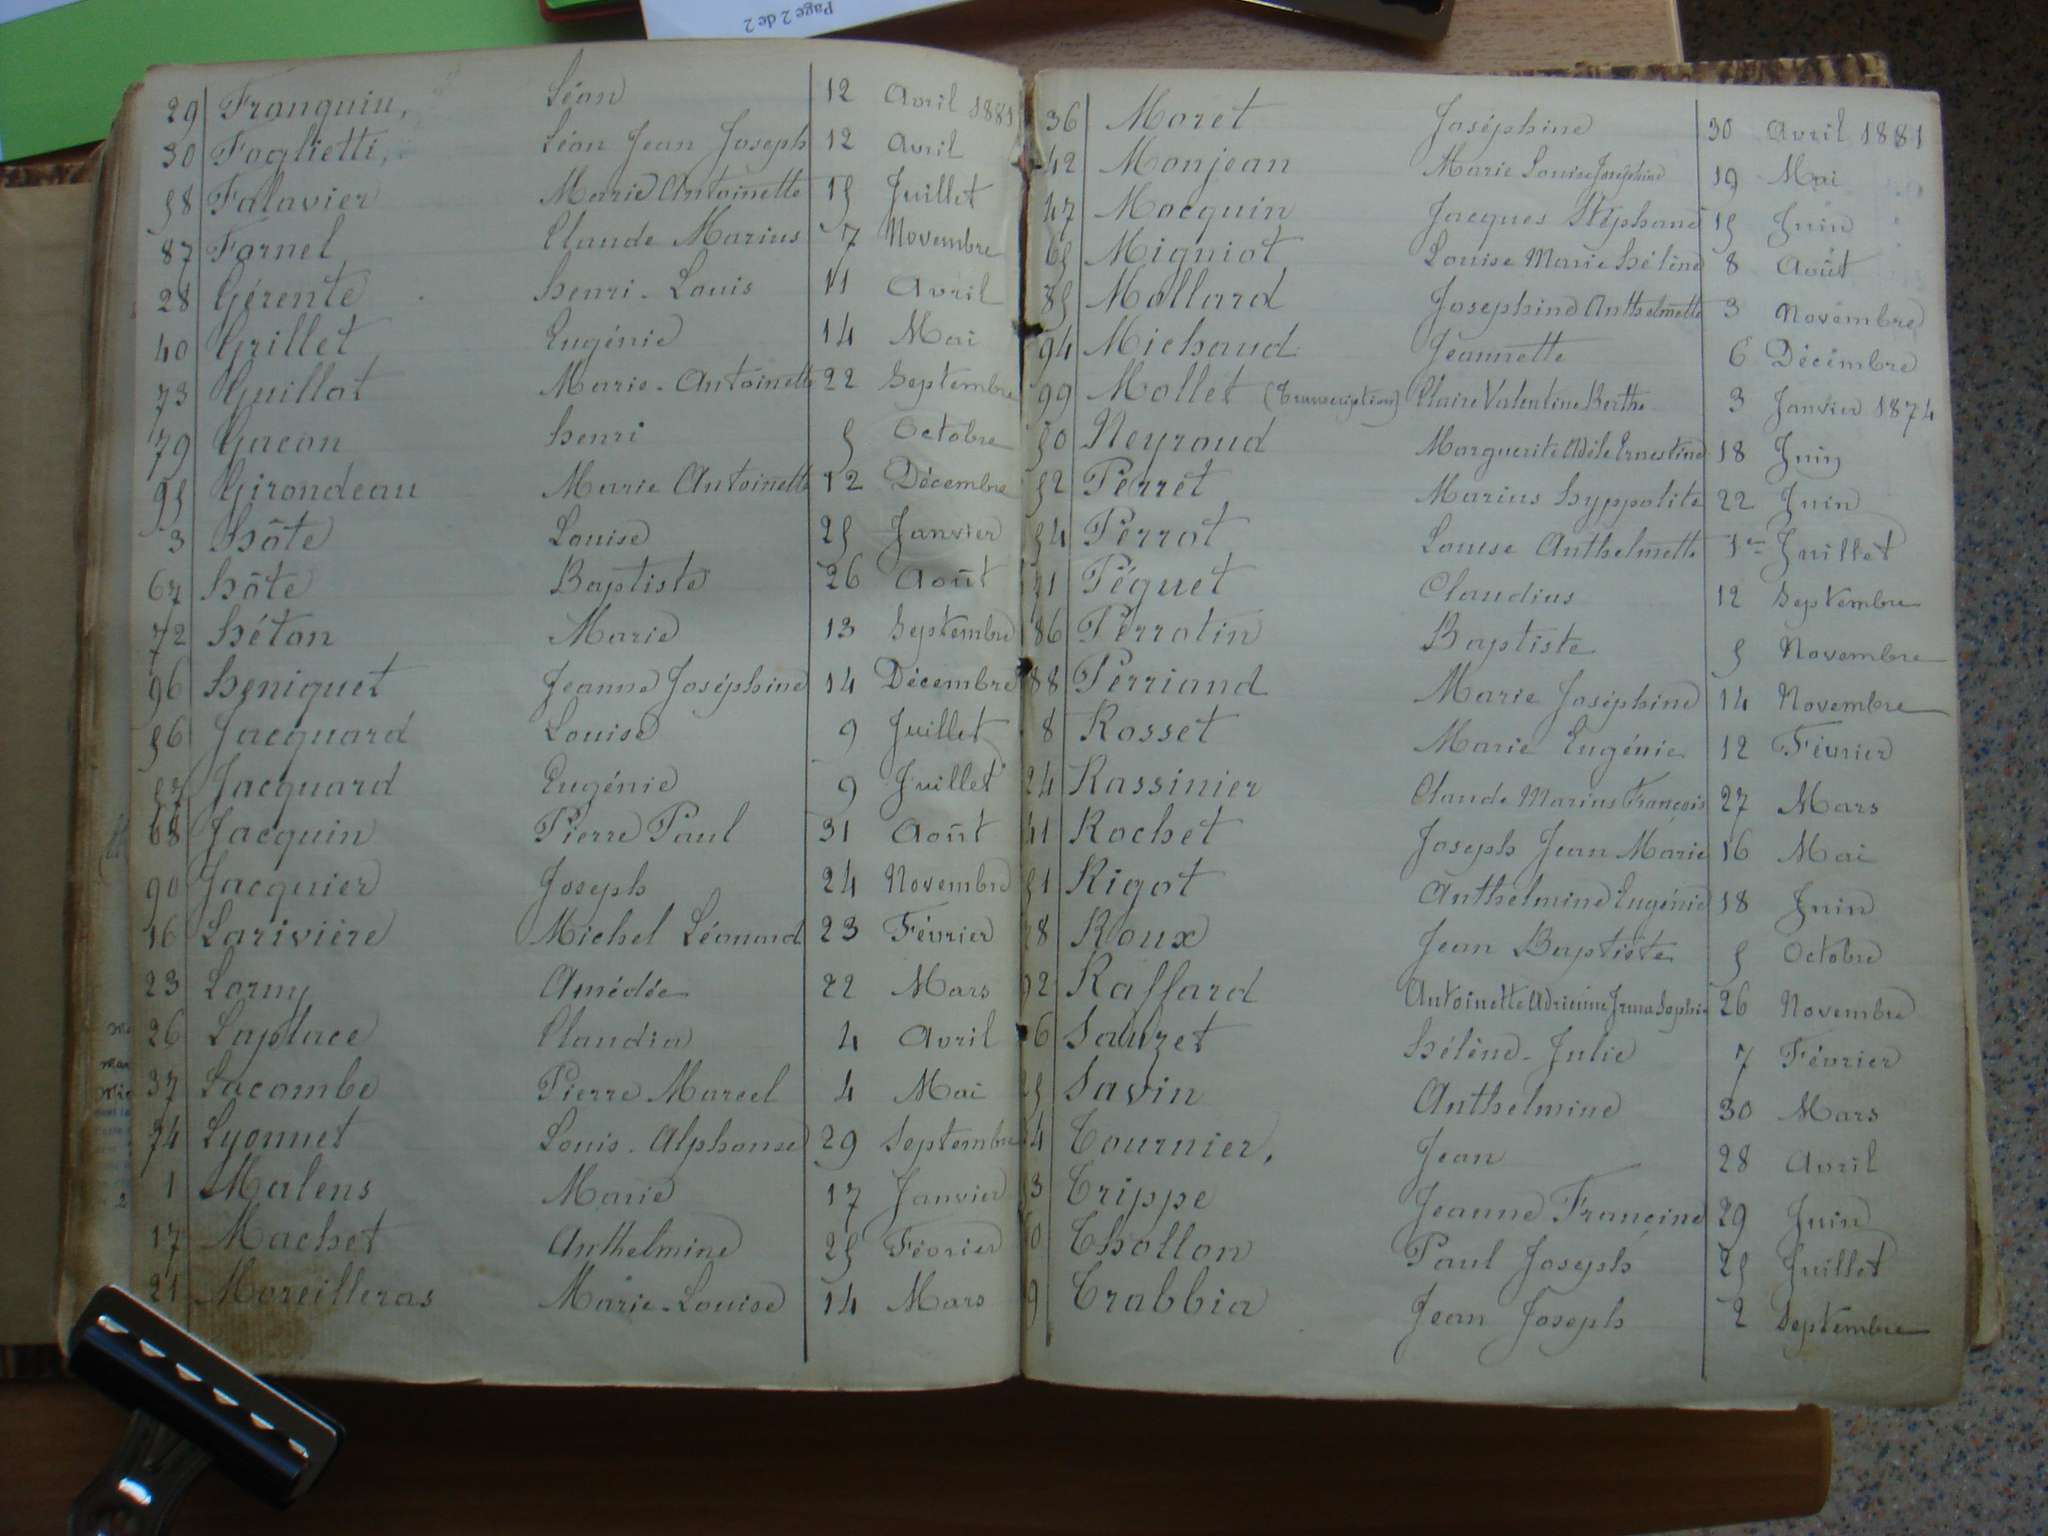 Page 2 de 2
29 Franquin, Léon 12 Avril 1881
30 Foglietti, Léon Jean Joseph 12 Avril
58 Falavier Marie Antoinette 15 Juillet
87 Fornel Claude Marius 7 Novembre
28 Gérente Henri-Louis 11 Avril
40 Grillet Eugénie 14 Mai
73 Guillot Marie-Antoinette 22 Septembre
79 Gacon Henri 5 Octobre
95 Girondeau Marie Antoinette 12 Décembre
3 Hôte Louise 25 Janvier
67 Hôte Baptiste 26 Août
72 Héton Marie 13 Septembre
96 Heniquet Jeanne Joséphine 14 Décembre
56 Jacquard Louise 9 Juillet
57 Jacquard Eugénie 9 Juillet
68 Jacquin Pierre Paul 31 Août
90 Jacquier Joseph 24 Novembre
16 Larivière Michel Léonard 23 Février
23 Lormy Amédée 22 Mars
26 Laplace Claudia 4 Avril
37 Lacombe Pierre Marcel 4 Mai
74 Lyonnet Louis-Alphonse 29 Septembre
1 Malens Marie 17 Janvier
17 Machet Anthelmine 25 Février
21 Moreilleras Marie-Louise 14 Mars
36 Moret Joséphine 30 Avril 1881
42 Monjean Marie Louise Joséphine 19 Mai
47 Mocquin Jacques Stéphane 15 Juin
65 Migniot Louise Marie Hélène 8 Août
85 Mollard Josephine Anthelmette 3 Novembre
94 Michaud Jeannette 6 Décembre
99 Mollet (Transcription) Claire Valentine Berthe 3 Janvier 1874
50 Neyroud Marguerite Adèle Ernestine 18 Juin
52 Perret Marius Hyppolite 22 Juin
54 Perrot Louise Anthelmette 1er Juillet
71 Péguet Claudius 12 Septembre
86 Perrotin Baptiste 5 Novembre
88 Perriand Marie Joséphine 14 Novembre
8 Rosset Marie Eugénie 12 Février
24 Rassinier Claude Marius François 27 Mars
41 Rochet Joseph Jean Marie 16 Mai
51 Rigot Anthelmine Eugénie 18 Juin
78 Roux Jean Baptiste 5 Octobre
92 Raffard Antoinette Adrienne Irma Sophie 26 Novembre
6 Sauzet Hélène-Julie 7 Février
25 Savin Anthelmine 30 Mars
4 Tournier, Jean 28 Avril
53 Trippe Jeanne Francine 29 Juin
0 Thollon Paul Joseph 25 Juillet
9 Trabbia Jean Joseph 2 Septembre